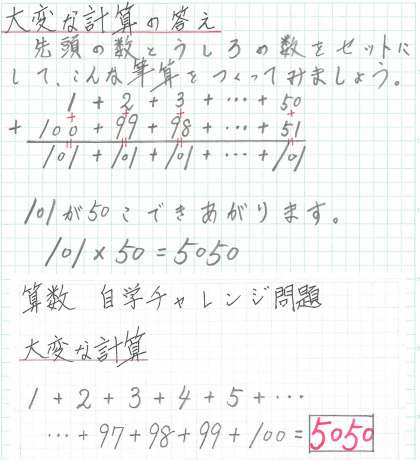 大変な計算の答え
先頭の数とうしろの数をセットに
して、こんな筆算をつくってみましょう。
1 + 2 + 3 + … + 50
+ 100 + 99 + 98 + … + 51
101 + 101 + 101 + … + 101
101が50こできあがります。
101 × 50 = 5050
算数 自学チャレンジ問題
大変な計算
1 + 2 + 3 + 4 + 5 + …
… + 97 + 98 + 99 + 100 = 5050